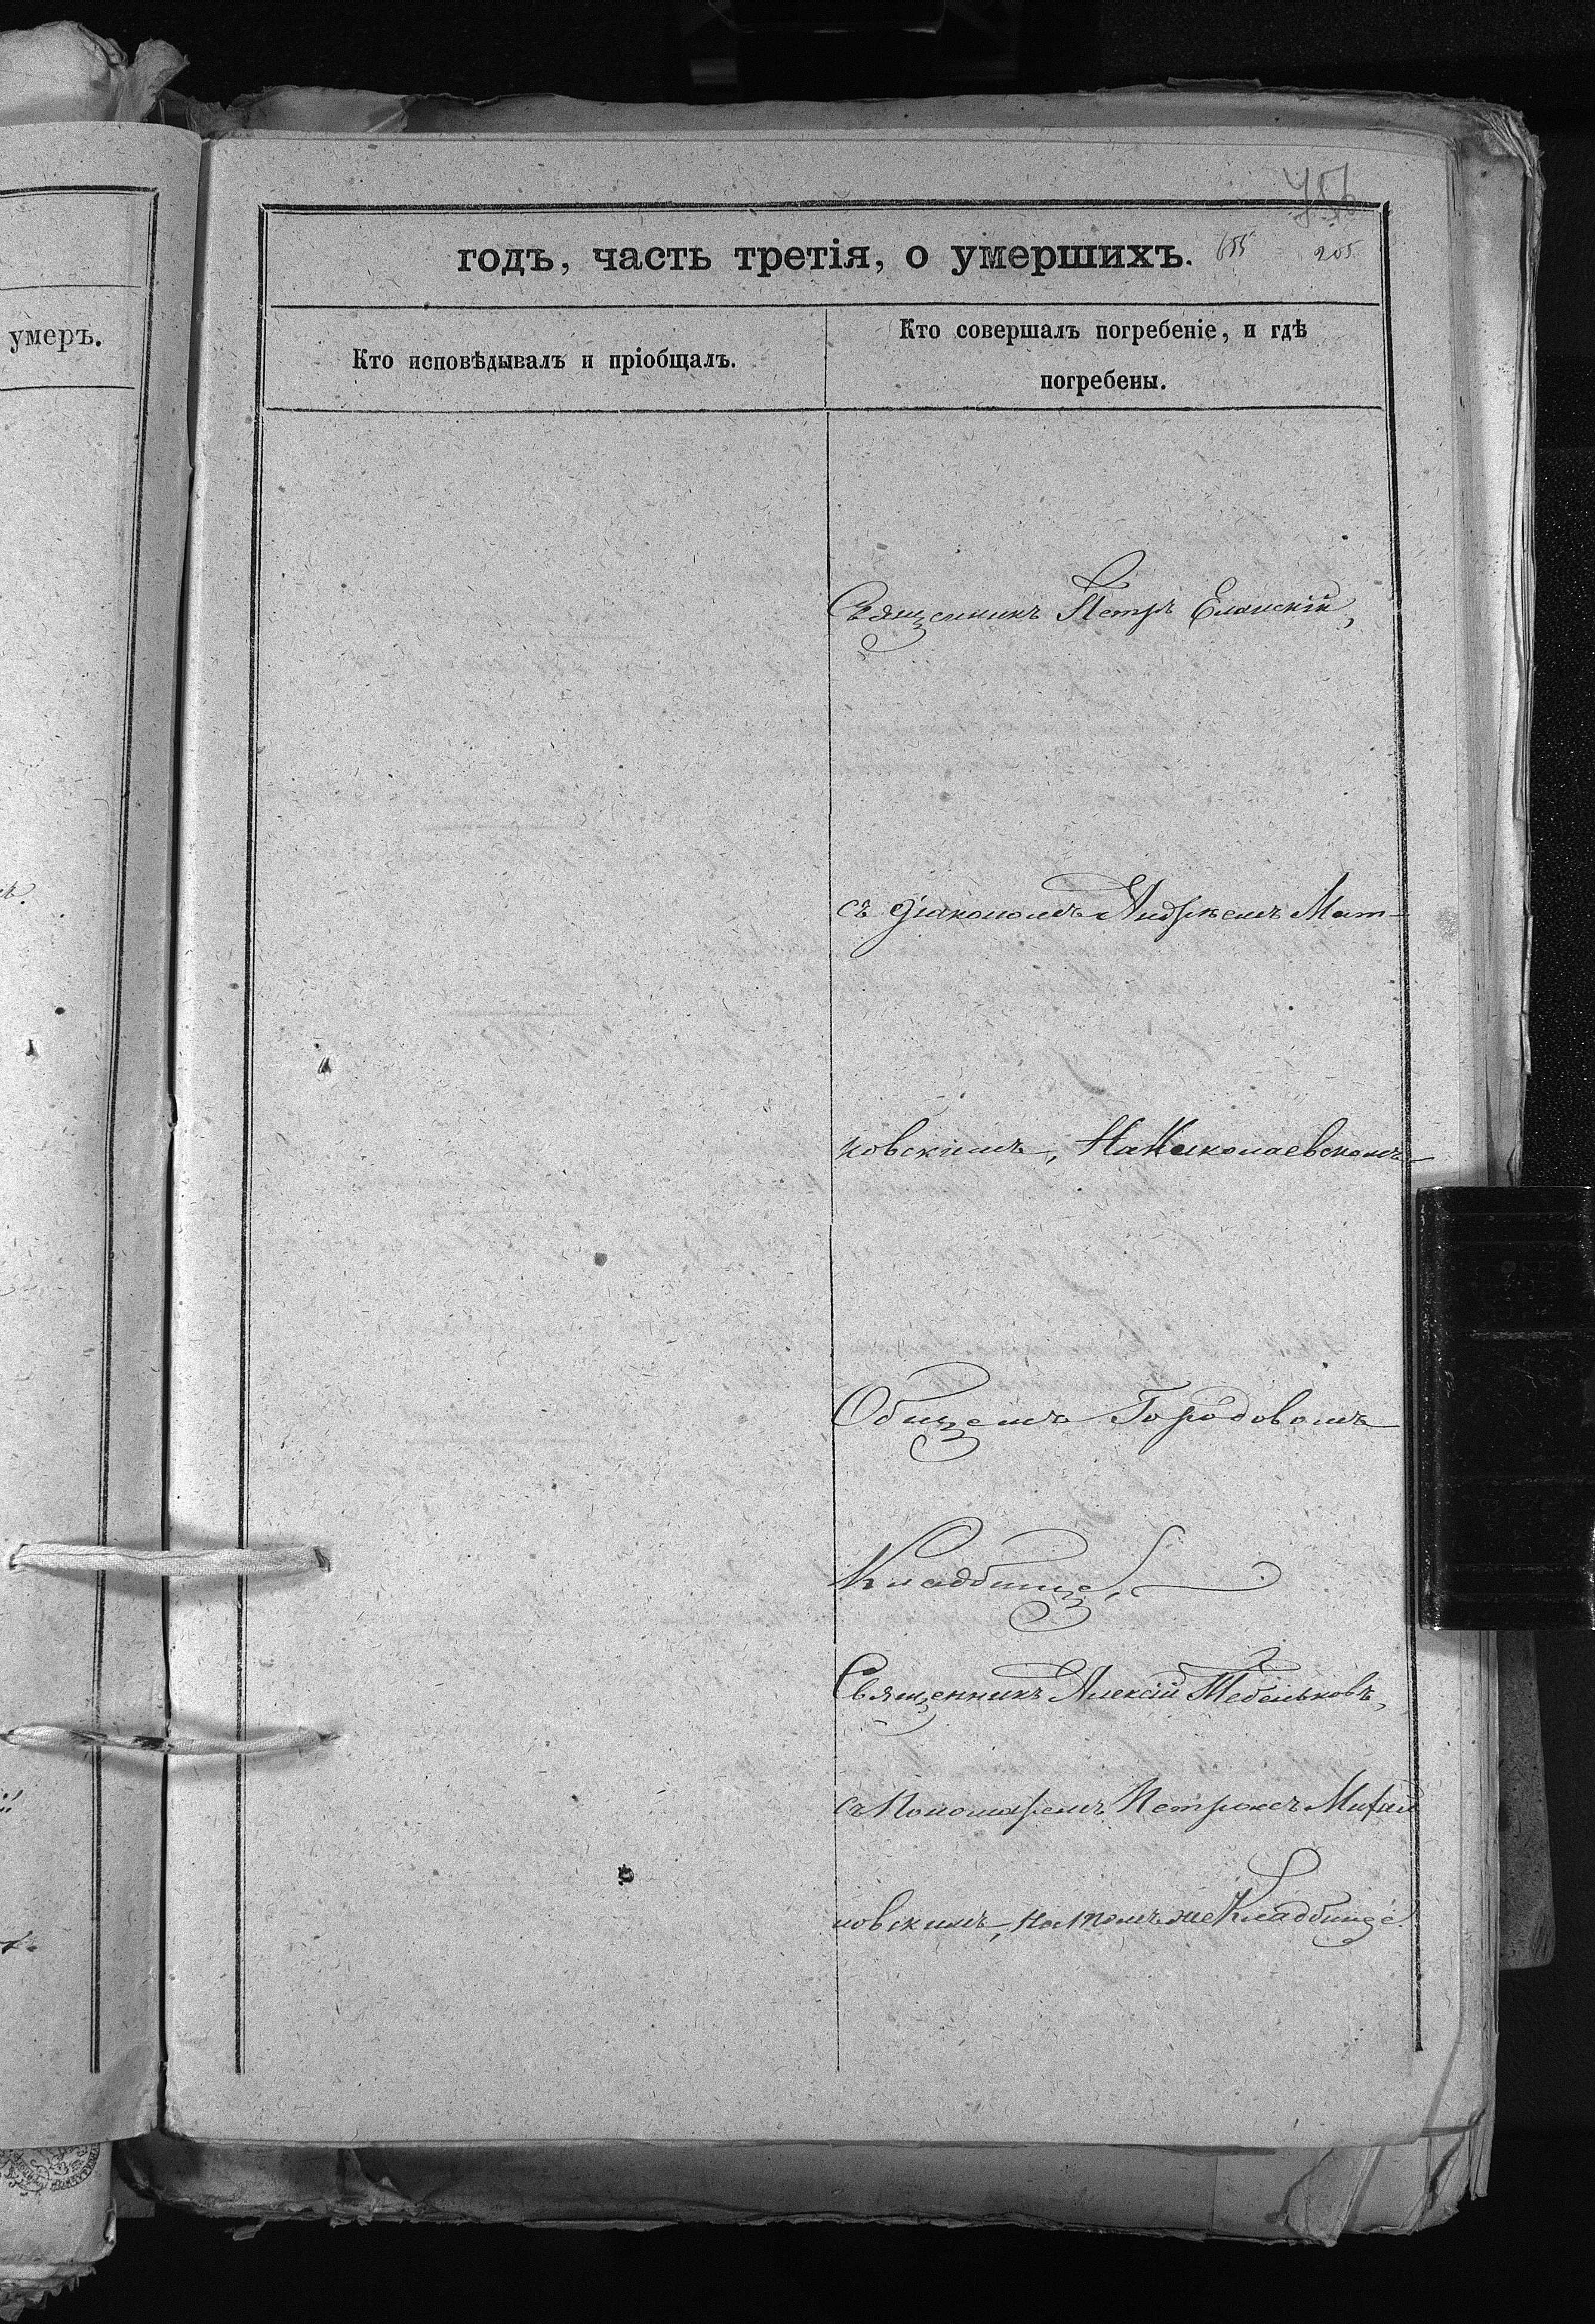 умеръ.
годъ, часть третія, о умершихъ.
205
Кто исповѣдывалъ и пріобщалъ.
Кто совершалъ погребеніе, и гдѣ
погребены.
Священникъ Петръ Еланскій,
съ діакономъ Андреемъ Мат-
ковскимъ, На Николаевскомъ
Общемъ Городовомъ
Кладбище,
Священникъ Алексій Тебеньковъ,
съ Пономаремъ Петромъ Михай
ловскимъ, на томъ же Кладбище.